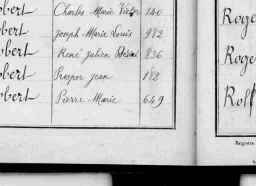 obert Charles Marie Victor 140
obert Joseph Marie Louis 982
obert René Julien Désiré 836
obert Prosper Jean 188
obert Pierre Marie 649
Roge
Roge
Registre